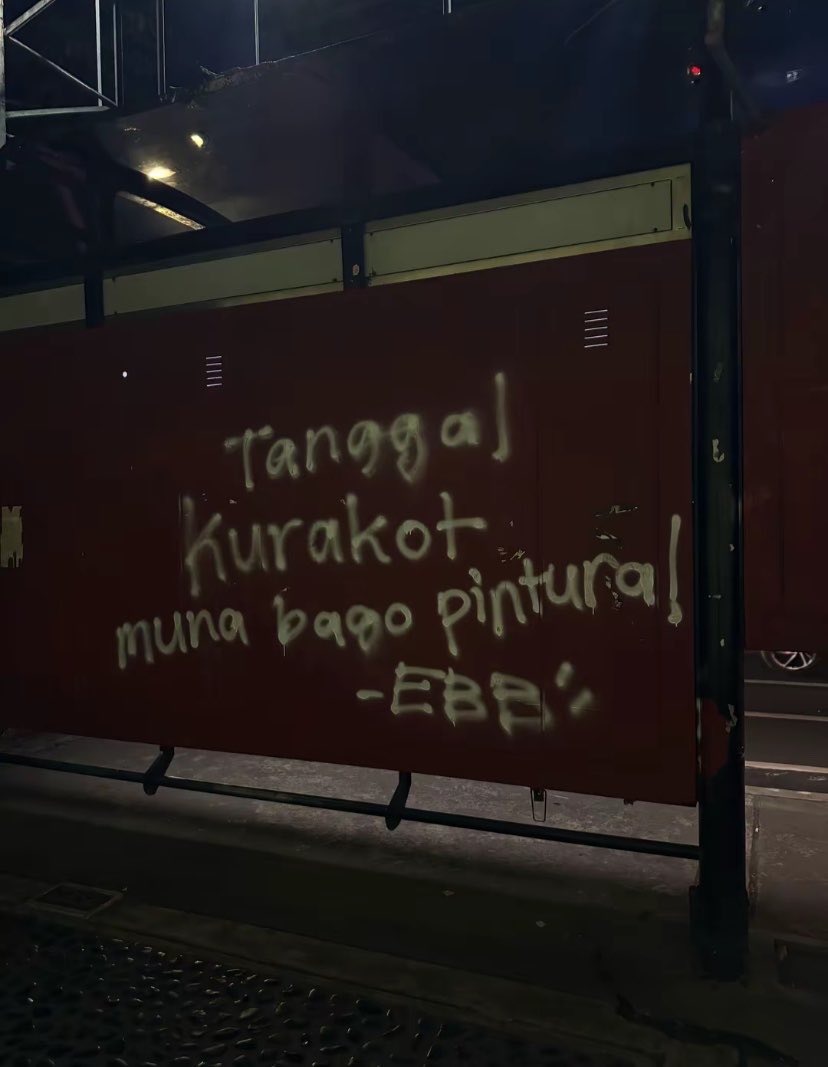 Tanggal
kurakot
muna bago pintura!
-EBB